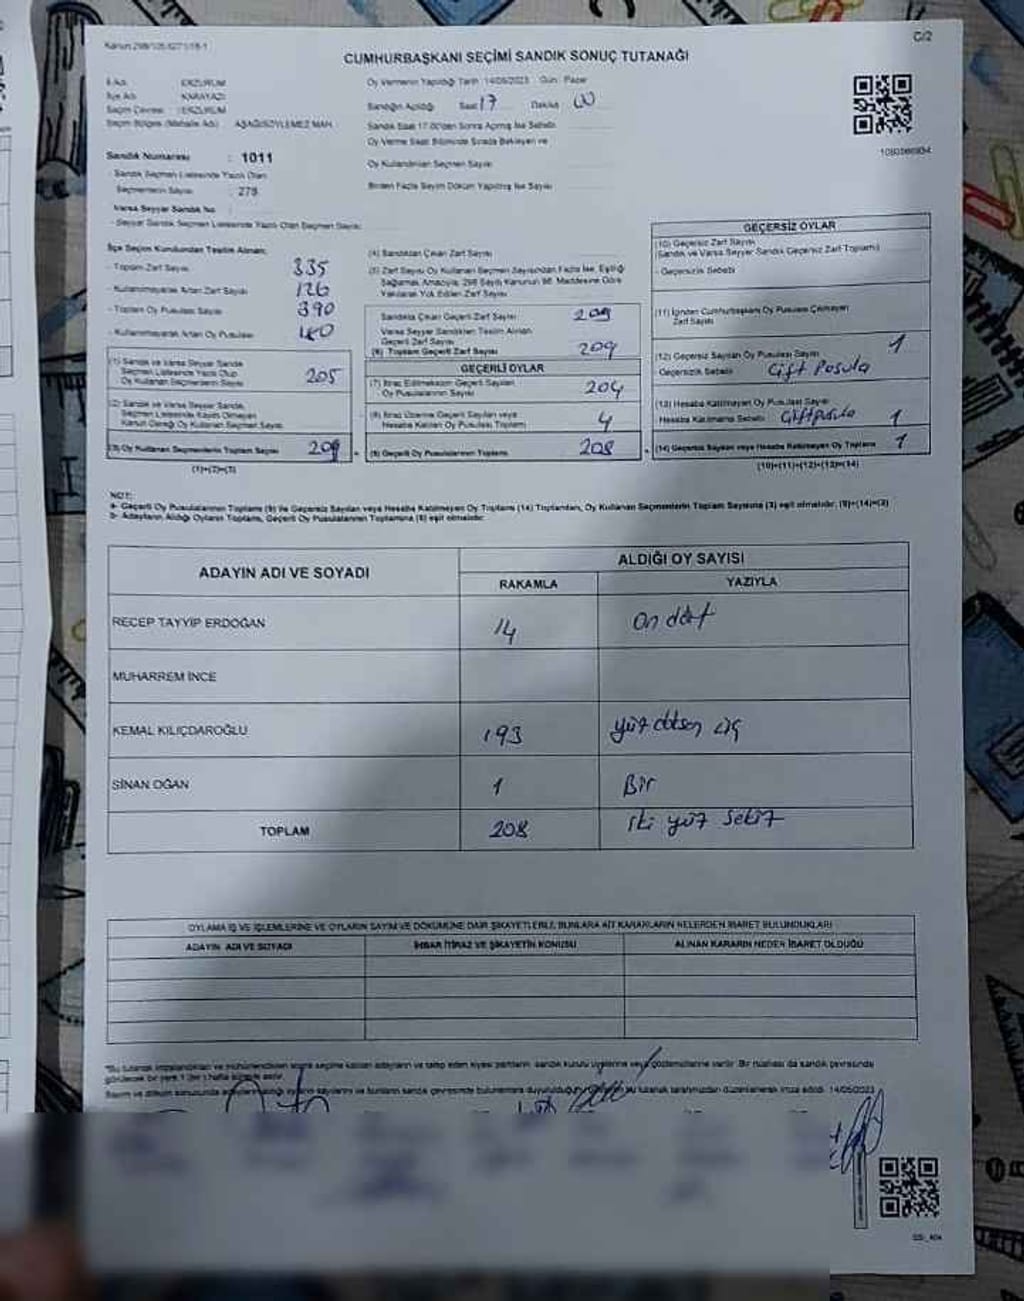 Kanun 298/105,6271/18-1
C/2
CUMHURBAŞKANI SEÇİMİ SANDIK SONUÇ TUTANAĞI
İl Adı : ERZURUM
İlçe Adı : KARAYAZI
Seçim Çevresi : ERZURUM
Seçim Bölgesi (Mahalle Adı) : AŞAĞISÖYLEMEZ MAH.
Oy Vermenin Yapıldığı Tarih 14/05/2023 Gün : Pazar
Sandığın Açıldığı Saat 17 Dakika 00
Sandık Saat 17.00'den Sonra Açılmış İse Sebebi
Oy Verme Saati Bitiminde Sırada Bekleyen ve
Oy Kullandırılan Seçmen Sayısı
Birden Fazla Sayım Döküm Yapılmış İse Sayısı
Sandık Numarası : 1011
- Sandık Seçmen Listesinde Yazılı Olan
Seçmenlerin Sayısı : 278
Varsa Seyyar Sandık No
- Seyyar Sandık Seçmen Listesinde Yazılı Olan Seçmen Sayısı
İlçe Seçim Kurulundan Teslim Alınan;
- Toplam Zarf Sayısı 335
- Kullanılmayarak Artan Zarf Sayısı 126
- Toplam Oy Pusulası Sayısı 390
- Kullanılmayarak Artan Oy Pusulası
(1) Sandık ve Varsa Seyyar Sandık
Seçmen Listesinde Yazılı Olup
Oy Kullanan Seçmenlerin Sayısı 205
(2) Sandık ve Varsa Seyyar Sandık
Seçmen Listesinde Kaydı Olmayan
Kanun Gereği Oy Kullanan Seçmen Sayısı
(3) Oy Kullanan Seçmenlerin Toplam Sayısı 209
(1)+(2)=(3)
(4) Sandıktan Çıkan Zarf Sayısı
(5) Zarf Sayısı Oy Kullanan Seçmen Sayısından Fazla İse, Eşitliği
Sağlamak Amacıyla; 298 Sayılı Kanunun 98. Maddesine Göre
Yakılarak Yok Edilen Zarf Sayısı
Sandıkta Çıkan Geçerli Zarf Sayısı 209
Varsa Seyyar Sandıktan Teslim Alınan
Geçerli Zarf Sayısı
(6) Toplam Geçerli Zarf Sayısı 209
GEÇERLİ OYLAR
(7) İtiraz Edilmeksizin Geçerli Sayılan
Oy Pusulası Sayısı 204
(8) İtiraz Üzerine Geçerli Sayılan veya
Hesaba Katılan Oy Pusulası Toplamı 4
(9) Geçerli Oy Pusulalarının Toplamı 208
GEÇERSİZ OYLAR
(10) Geçersiz Zarf Sayısı
(Sandık ve Varsa Seyyar Sandık Geçersiz Zarf Toplamı)
- Geçersizlik Sebebi
(11) İçinden Cumhurbaşkanı Oy Pusulası Çıkmayan
Zarf Sayısı
(12) Geçersiz Sayılan Oy Pusulası Sayısı 1
Geçersizlik Sebebi Çift Posula
(13) Hesaba Katılmayan Oy Pusulası Sayısı
Hesaba Katılmama Sebebi Çiftpusula 1
(14) Geçersiz Sayılan veya Hesaba Katılmayan Oy Toplamı 1
(10)+(11)+(12)+(13)=(14)
NOT:
a- Geçerli Oy Pusulalarının Toplamı (9) ile Geçersiz Sayılan veya Hesaba Katılmayan Oy Toplamı (14) Toplamları, Oy Kullanan Seçmenlerin Toplam Sayısına (3) eşit olmalıdır. (9)+(14)=(3)
b- Adayların Aldığı Oyların Toplamı, Geçerli Oy Pusulalarının Toplamına (9) eşit olmalıdır.
ADAYIN ADI VE SOYADI
ALDIĞI OY SAYISI
RAKAMLA YAZIYLA
RECEP TAYYİP ERDOĞAN 14 On dört
MUHARREM İNCE
KEMAL KILIÇDAROĞLU 193 yüz doksen üç
SİNAN OĞAN 1 Bir
TOPLAM 208 iki yüz sekiz
OYLAMA İŞ VE İŞLEMLERİNE VE OYLARIN SAYIM VE DÖKÜMÜNE DAİR ŞİKAYETLERLE, BUNLARA AİT KARARLARIN NELERDEN İBARET BULUNDUKLARI
ADAYIN ADI VE SOYADI İHBAR İTİRAZ VE ŞİKAYETİN KONUSU ALINAN KARARIN NEDEN İBARET OLDUĞU